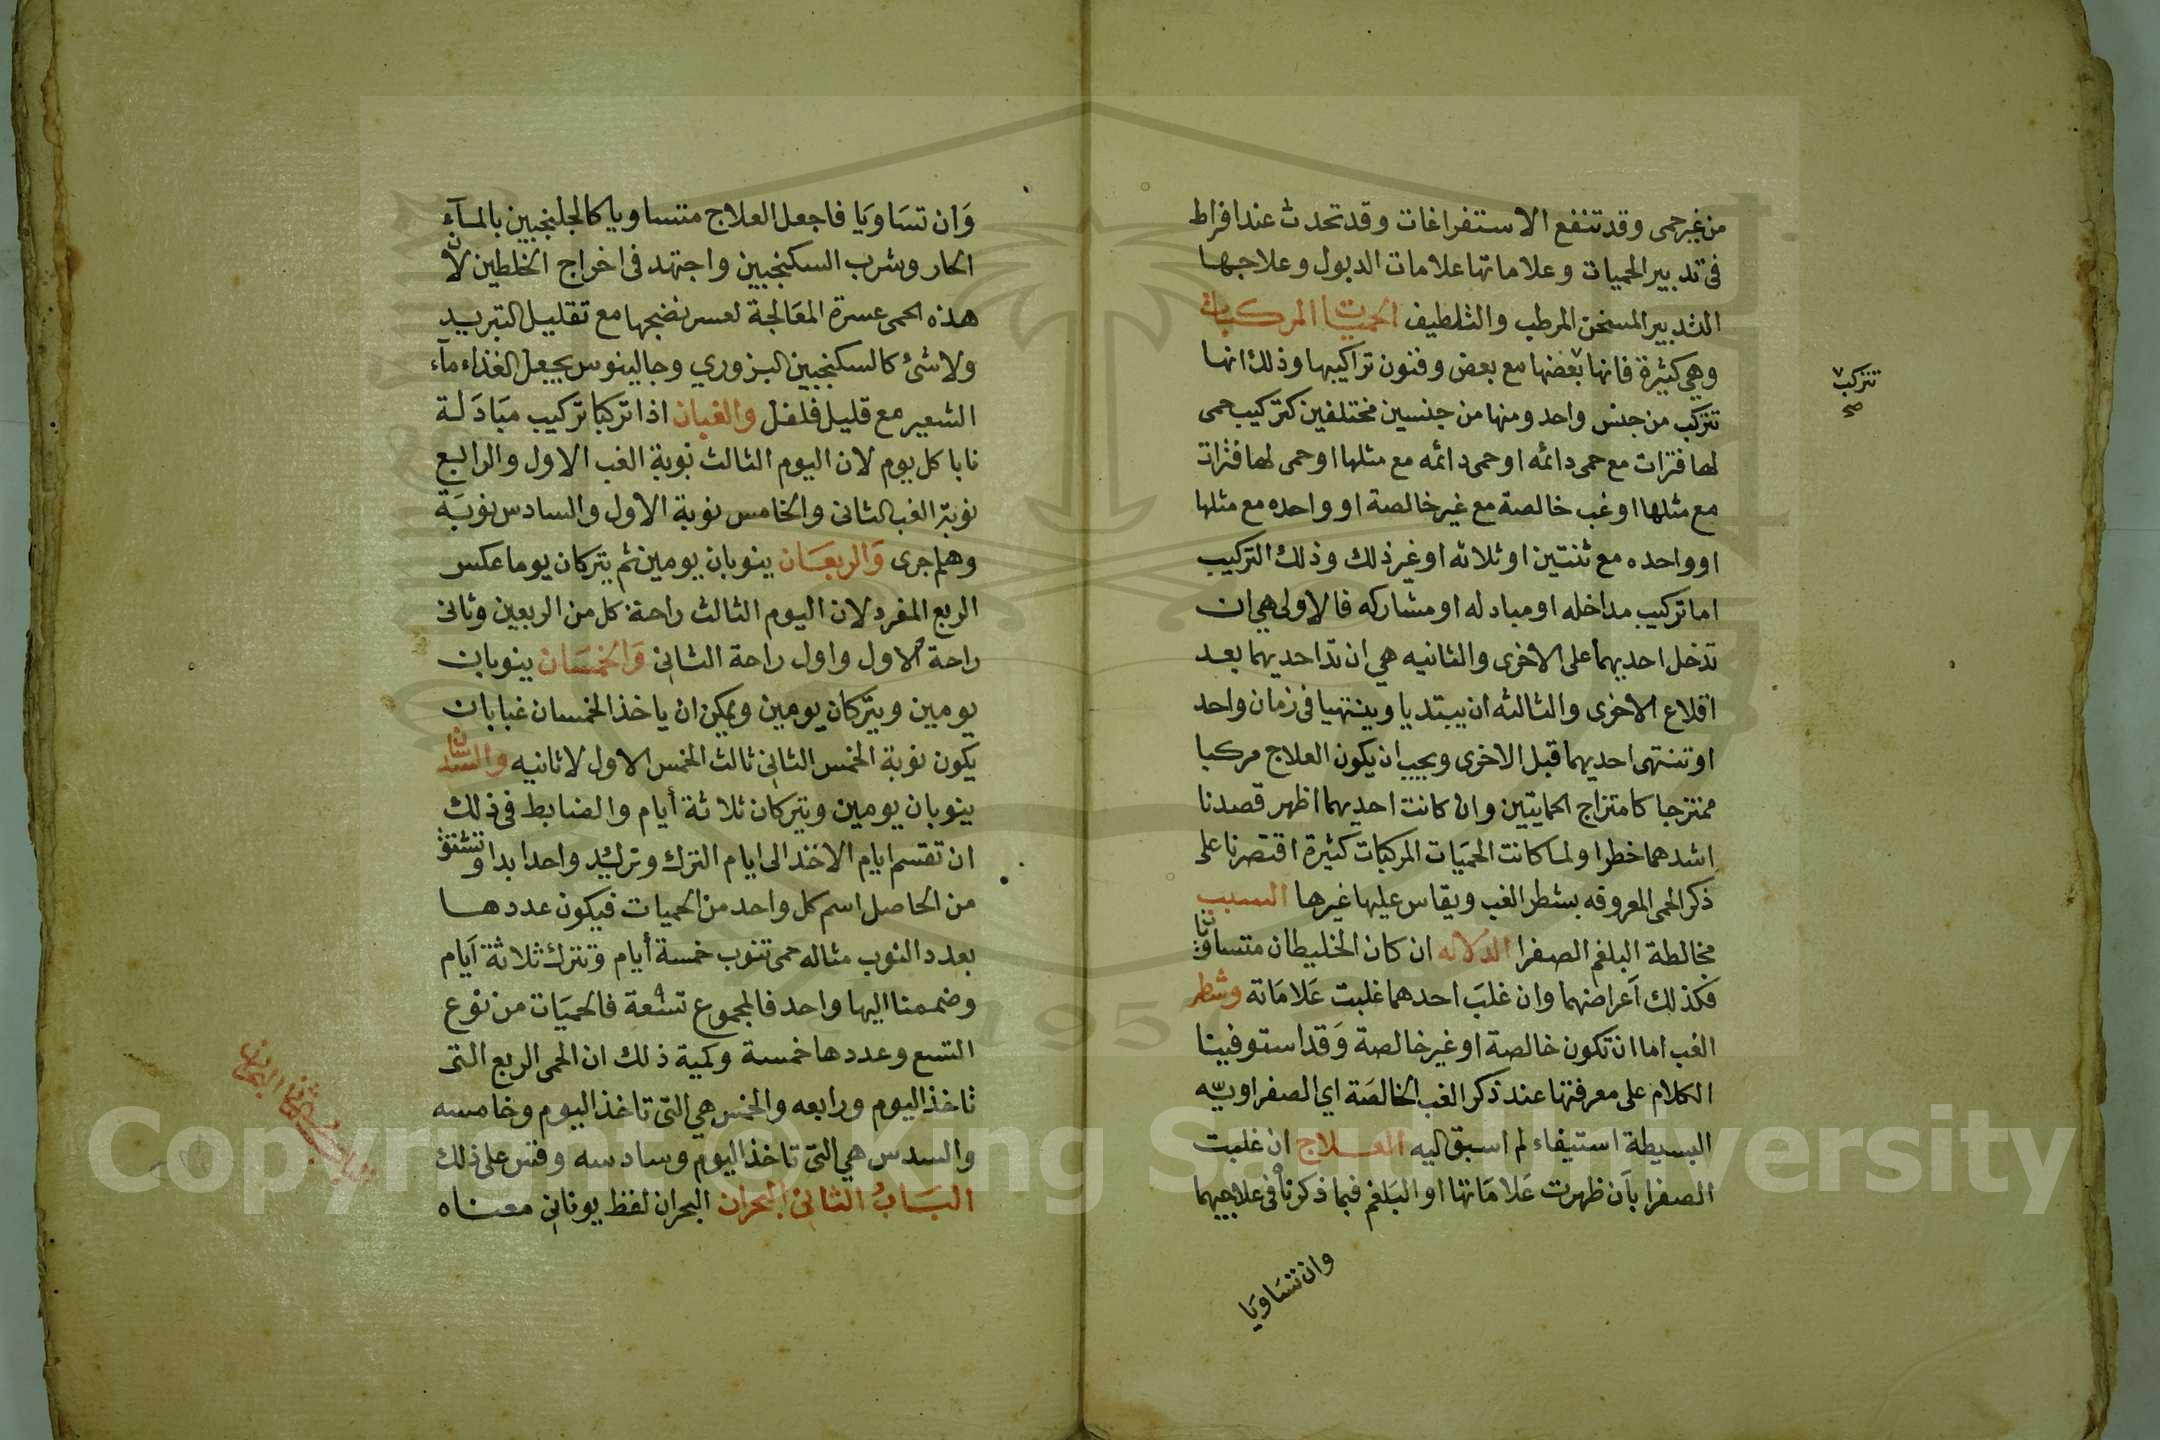 من غير حمى وقد تنفع الاستفراغات وقد تحدث عند افراط
فى تدبير الحميات وعلاماتها علامات الدبول وعلاجها
التدبير المسخن المرطب والتلطيف الحميات المركبات
وهي كثيرة فانها بعضها مع بعض وفنون تراكيبها وذلك انها
تتركب صح
تتركب من جنس واحد ومنها من جنسين مختلفين كتركيب حمى
لها فترات مع حمى دائمه او حمى دائمه مع مثلها او حمى لها فترات
مع مثلها او غب خالصة مع غير خالصة او واحده مع مثلها
او واحده مع ثنتين او ثلاثه او غير ذلك وذلك التركيب
اما تركيب مداخله او مبادله او مشاركه فالاولى هي ان
تدخل احديهما على الاخرى والثانيه هي ان تداحديهما بعد
اقلاع الاخرى والثالثه ان يبتديا وينتهيا فى زمان واحد
او تنتهى احديهما قبل الاخرى ويجب ان يكون العلاج مركبا
ممتزجا كامتزاج الحمايتين وان كانت احديهما اظهر قصدنا
اشدهما خطرا ولما كانت الحميات المركبات كثيرة اقتصرنا على
ذكر الحمى المعروفه بشطر الغب ويقاس عليها غيرها السبب
مخالطة البلغم الصفرا الدلاله ان كان الخليطان متساويان
فكذلك اَعراضهما وان غلبَ احدهما غلبت عَلامَاته وشطر
الغب اما ان تكون خالصة او غير خالصة وَقد استوفينا
الكلام على معرفتها عند ذكر الغب الخالصَة اي الصفراويّه
البسيطة استيفاء لم اسبق اليه العلاج ان غلبت
الصفرا بأن ظهرت عَلامَاتها او البَلغم فبما ذكرناه فى علاجيهما
وان تسَاويَا
وَان تسَاويَا فاجعل العلاج متساويا كالجلنجبين بالمآء
الحار وشرب السكنجبين واجتهد فى اخراج الخلطين لان
هذه الحمى عسرة المعَالجة لعسر نضجها مع تقليل التبريد
ولا شئ كالسكنجبين البزوري وجالينوس يجعل الغذاء مآء
الشعير مع قليل فلفل والغبان اذا تركبا تركيب مبَادَلة
نابا كل يوم لان اليوم الثالث نوبة الغب الاول والرابع
نوبة الغب الثانى والخامس نوبة الاول والسادس نوبَة
وهلم جرى وَالربعَان ينوبان يومين ثم يتركان يوما عكس
الربع المفرد لان اليوم الثالث راحة كل من الربعين وثانى
راحة الاول واول راحة الثانى وَالخمسَان ينوبان
يومين ويتركان يومين ويمكن ان ياخذ الخمسان غبا بان
يكون نوبة الخمس الثانى ثالث الخمس الاول لا ثانيه والسدسان
ينوبان يومين ويتركان ثلاثة أيام والضابط فى ذلك
ان تقسم ايام الاخذ الى ايام الترك وتزيد واحدا بدا وتشتق
من الحاصل اسم كل واحد من الحميات فيكون عددها
بعدد النوب مثاله حمى تنوب خمسة أيام وتترك ثلاثة اَيام
وضممنا اليها واحد فالمجموع تسعة فالحميَات من نوع
التسع وعددها خمسة وكمية ذلك ان الحمى الربع التى
تاخذ اليوم ورابعه والخمس هي التى تاخذ اليوم وخامسه
والسدس هي التى تاخذ اليوم وسادسه وقس على ذلك
البَابُ الثانى البحران البحران لفظ يونانى معناه
Copyright © King Saud University